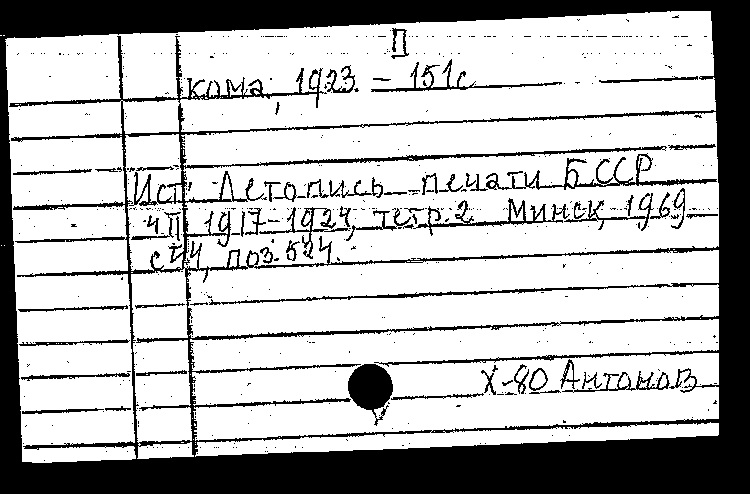 II
кома, 1923. – 151с
Ист: Летопись печати БССР
ч II 1917-1924, тетр. 2 Минск, 1969
с 44, поз. 524.
X-80 Антонов